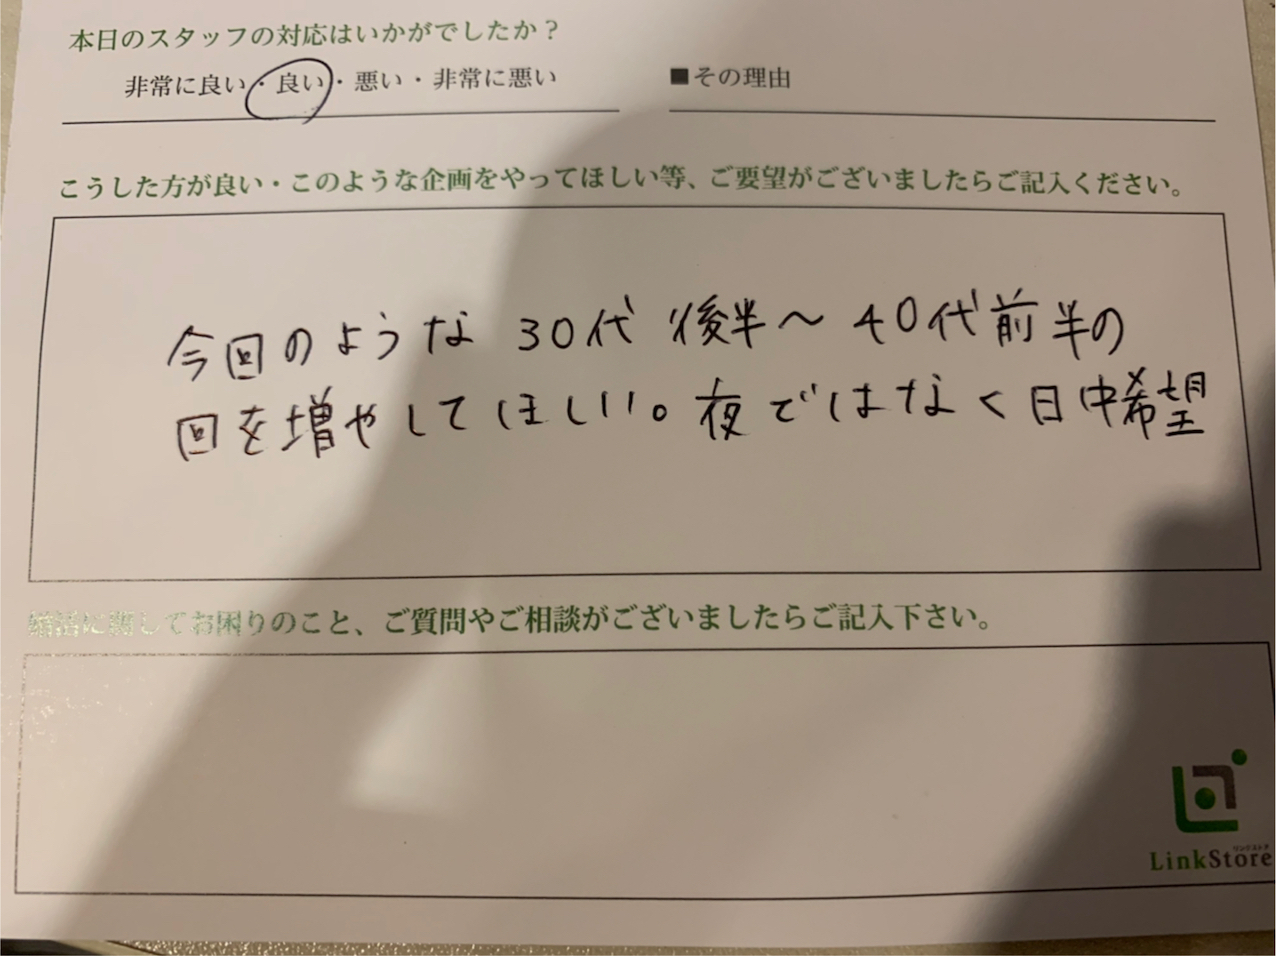 本日のスタッフの対応はいかがでしたか？
非常に良い・良い・悪い・非常に悪い
■その理由
こうした方が良い・このような企画をやってほしい等、ご要望がございましたらご記入ください。
今回のような 30代後半～40代前半の
回を増やしてほしい。夜ではなく日中希望
婚活に関してお困りのこと、ご質問やご相談がございましたらご記入下さい。
リンクストア
LinkStore